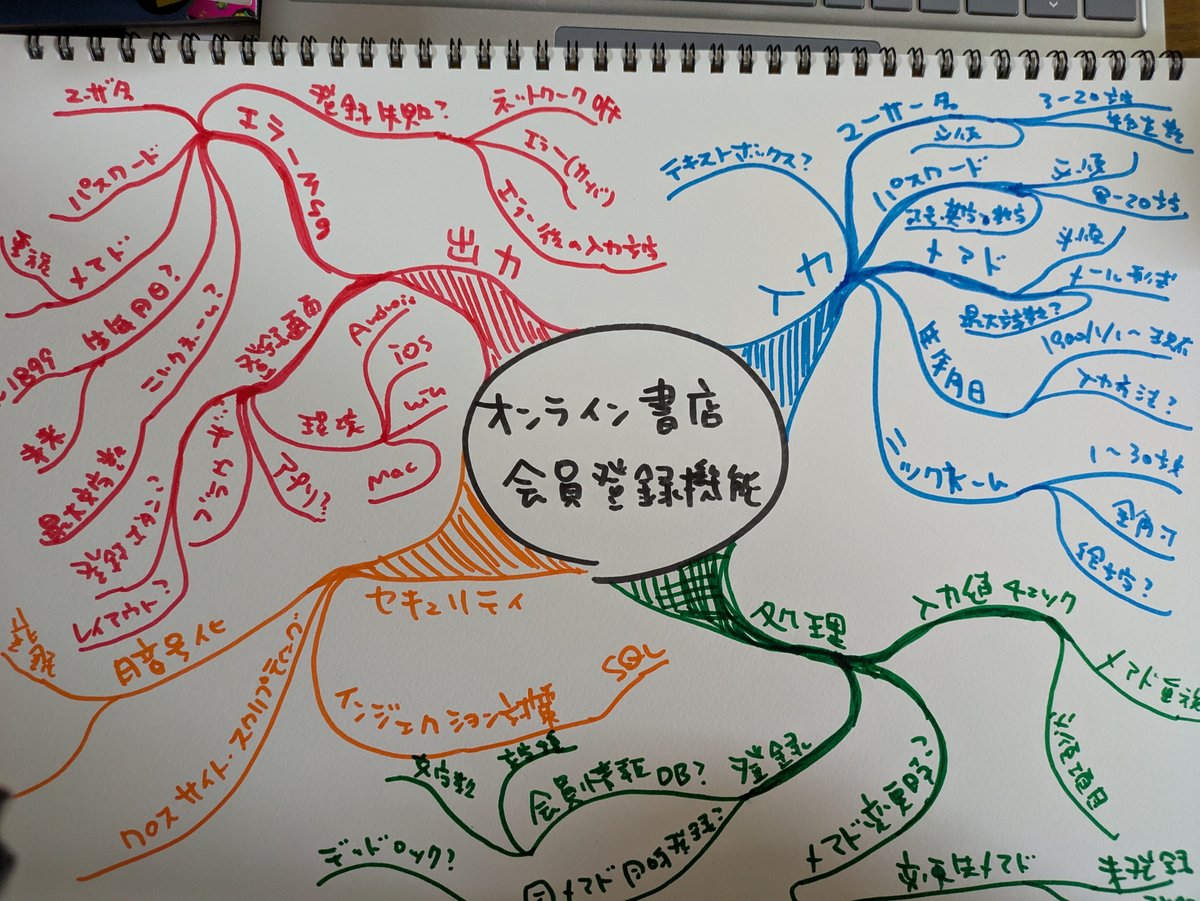 オンライン書店
会員登録機能
入力
テキストボックス?
ユーザ名
3-20文字
必須
パスワード
必須
8-20文字
メアド
必須
メール形式
最大文字数?
生年月日
1900/1/1~現在
入力方法?
ニックネーム
1~30文字
全角OK
絵文字?
出力
エラーMSG
登録失敗?
ネットワークOFF
エラー(サーバ)
エラー後の入力文字
ユーザ名
パスワード
メアド
重複
生年月日?
~1899
未来
ニックネーム?
最大文字数
登録画面
環境
Android
iOS
Win
Mac
アプリ?
ブラウザ
登録ボタン?
レイアウト?
セキュリティ
暗号化
クロスサイト・スクリプティング
インジェクション対策
SQL
処理
入力値チェック
メアド重複
必須項目
メアド変更時?
変更先メアド
未登録
登録
会員情報DB?
文字数
文字種
同メアド同時登録?
デッドロック?